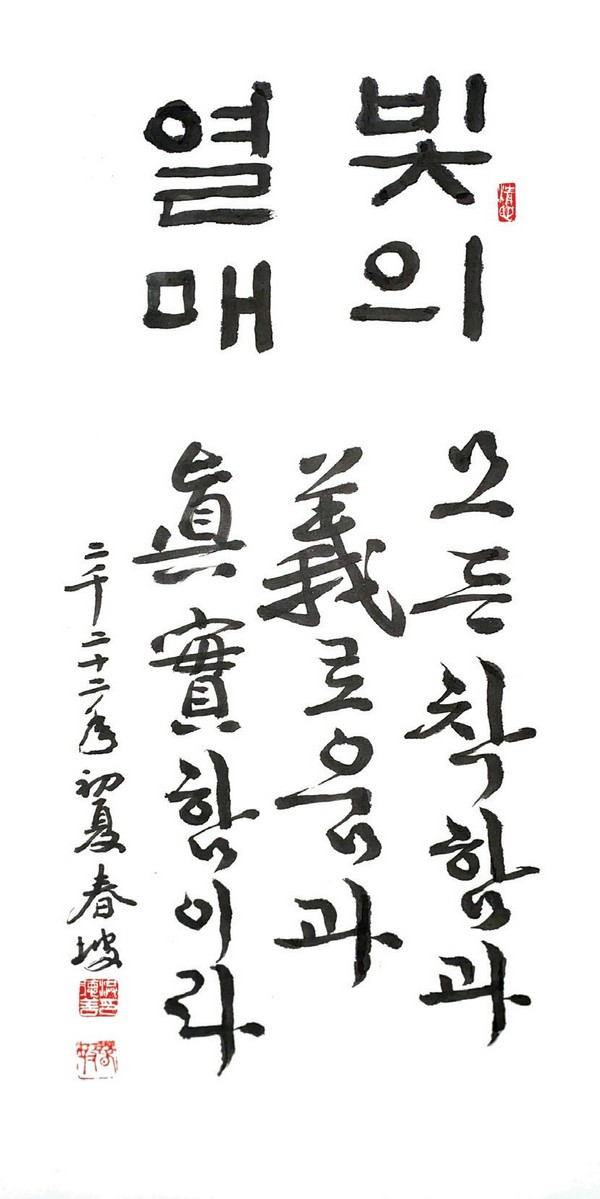 빛의
열매
모든 착함과
義로움과
眞實함이라
二千二十二年 初夏 春坡